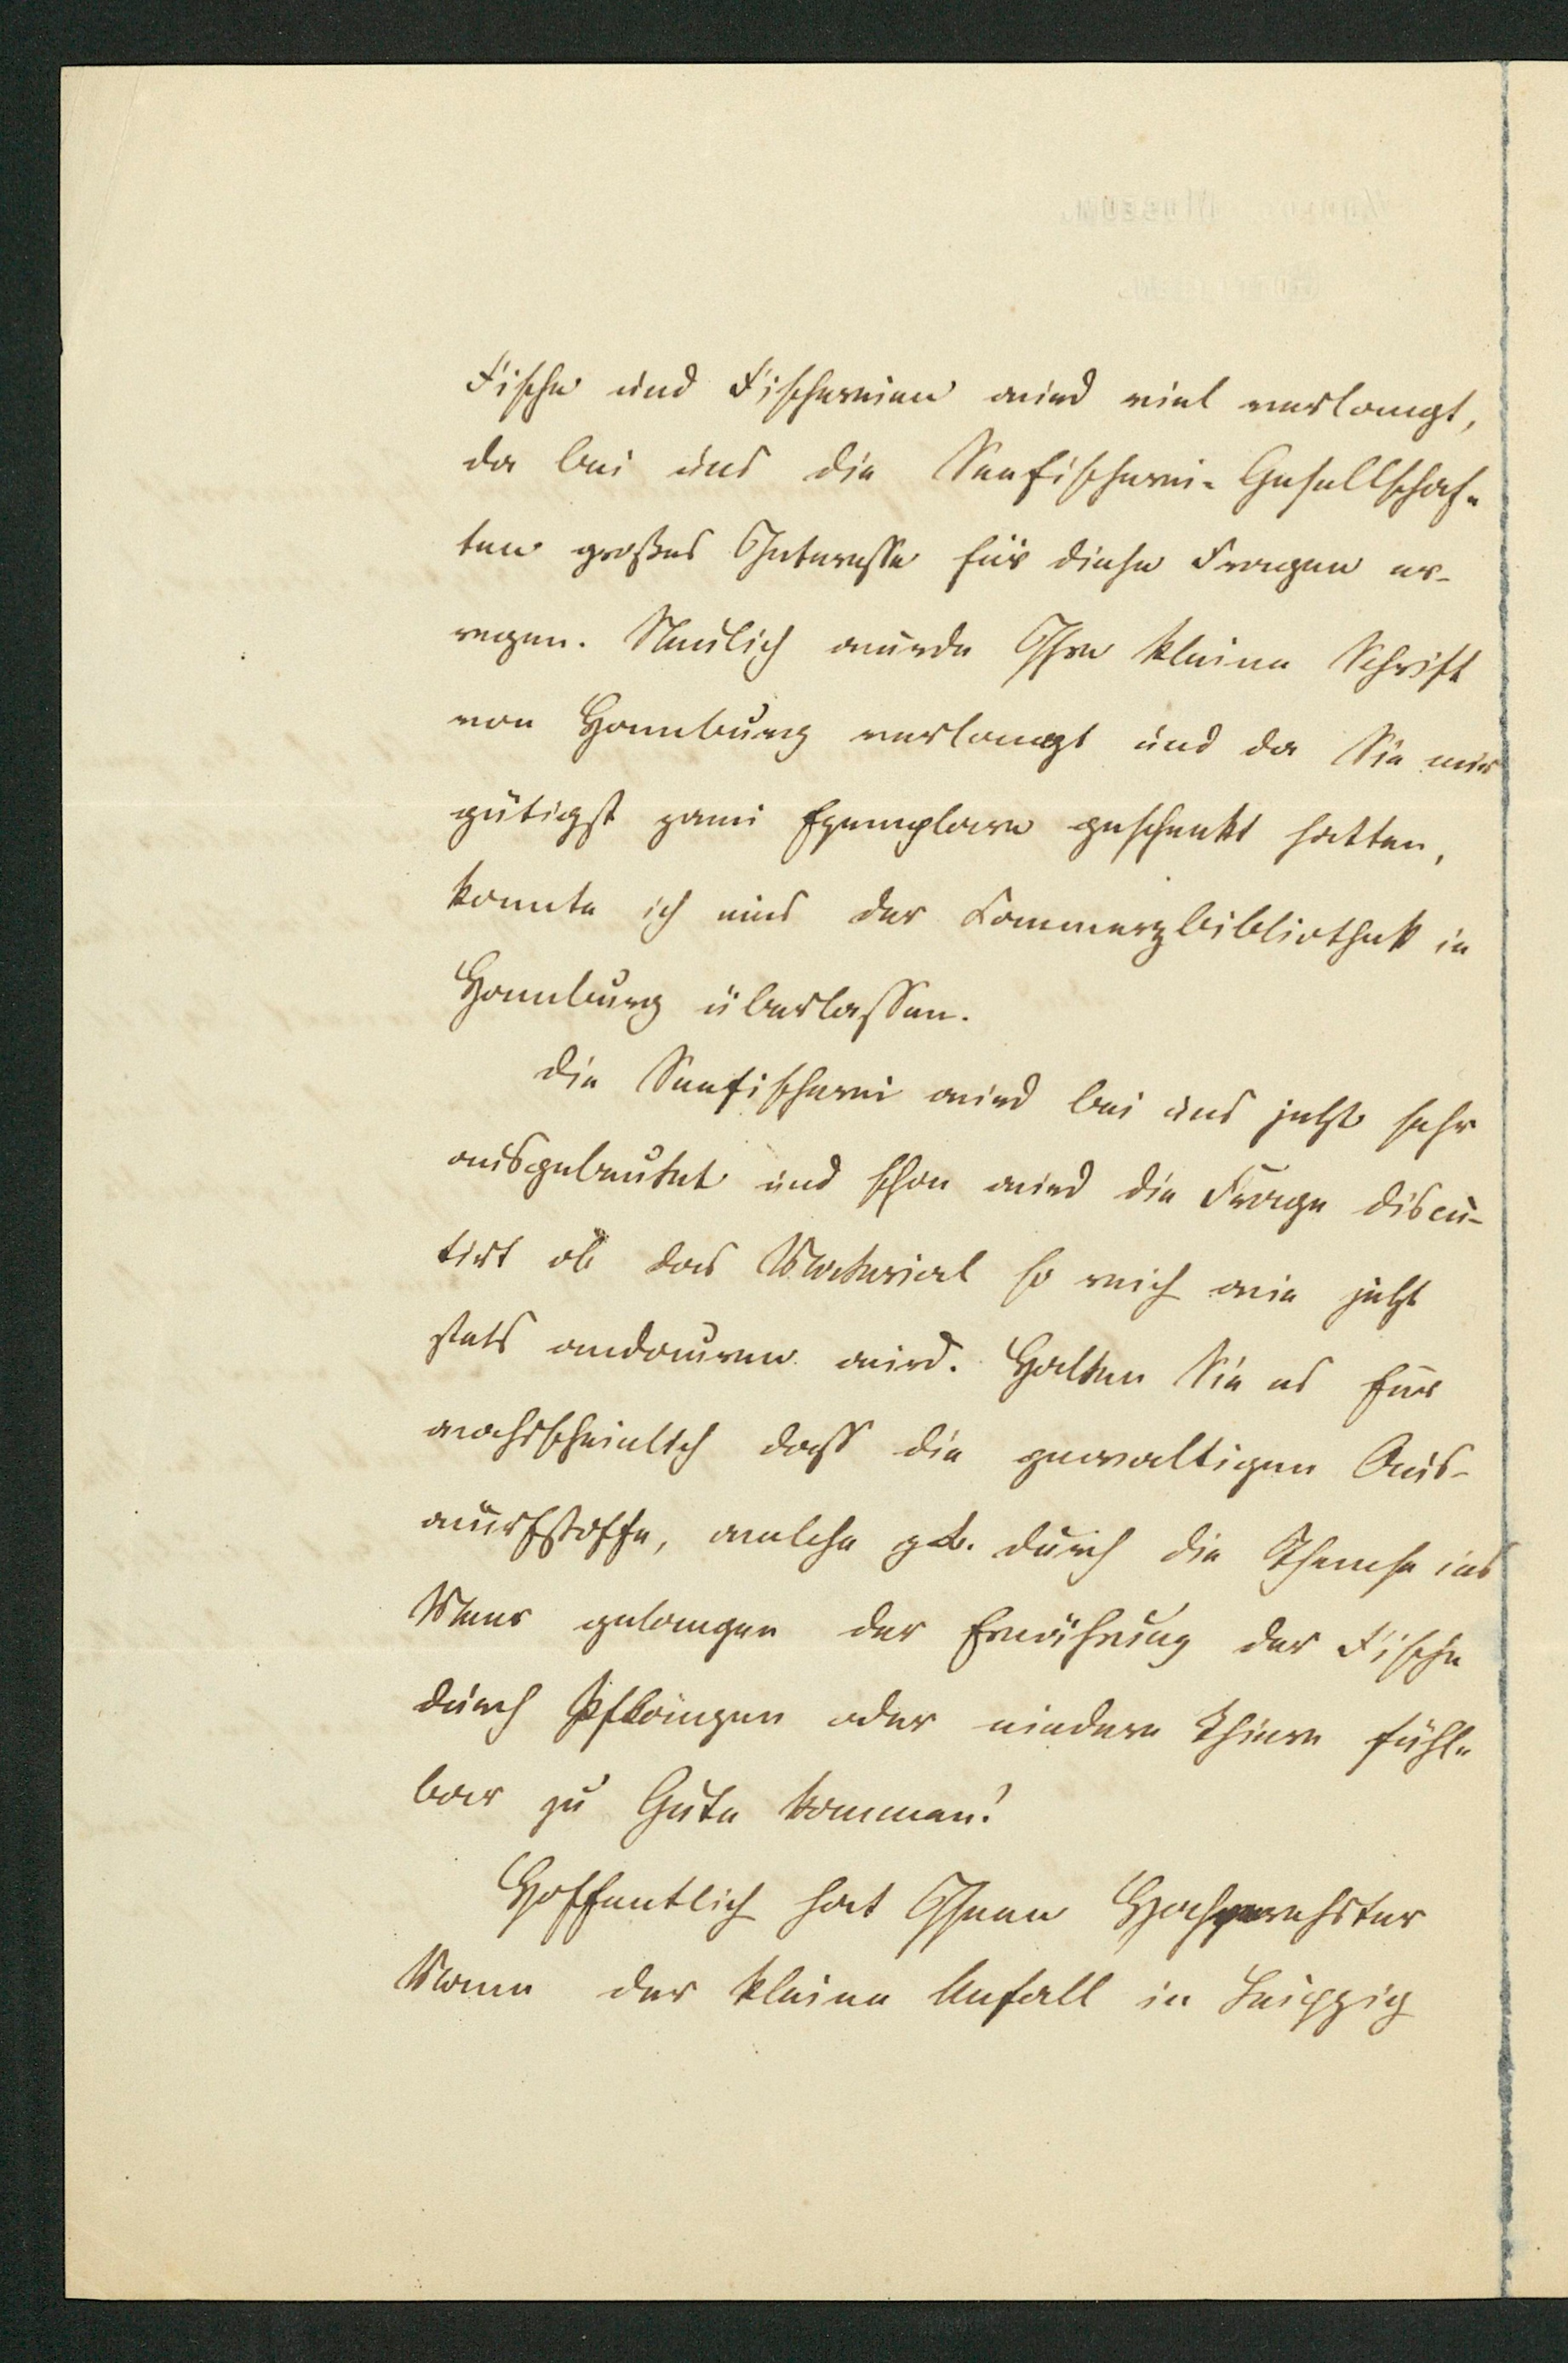 Fische und Fischereien wird viel verlangt,
da bei uns die Seefischerei-Gesellschaf-
ten großes Interesse für diese Fragen er-
regen. Neulich wurde Ihre kleine Schrift
von Hamburg verlangt und da Sie mir
gütigst zwei Exemplare geschenkt hatten,
konnte ich eins der Commerzbibliothek in
Hamburg überlassen.
Die Seefischerei wird bei uns jetzt sehr
ausgebeutet und schon wird die Frage discu-
tirt ob das Material so reich wie jetzt
stets andauern wird. Halten Sie es für
wahrscheinlich dass die gewaltigen Aus-
wurfstoffe, welche z.B. durch die Themse ins
Meer gelangen der Ernährung der Fische
durch Pflanzen oder niedere Thiere fühl-
bar zu Gute kommen?
Hoffentlich hat Ihnen Hochverehrter
Mann der kleine Unfall in Leipzig